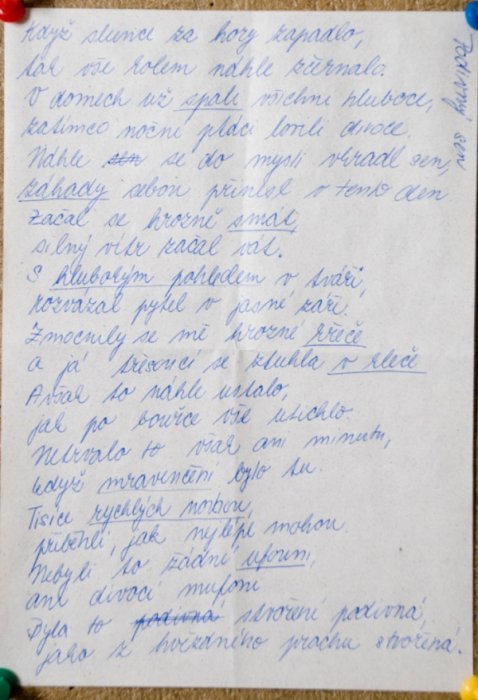 Když slunce za hory zapadlo,
tak vše kolem náhle zčernalo.
V domech už spali všichni hluboce,
zatímco noční ptáci lovili divoce.
Náhle se do mysli vkradl sen,
záhady sebou přinesl v tento den
Začal se hrozně smát,
silný vítr začal vát.
S hlubokým pohledem v tváři,
rozvázal pytel v jasné záři.
Zmocnily se mě hrozné křeče
a já třesouc se ztuhla v kleče
Avšak to náhle ustalo,
jak po bouřce vše utichlo.
Netrvalo to však ani minutu,
když mravenčení bylo tu.
Tisíce rychlých nohou,
přiběhli, jak nejlépe mohou.
Nebyli to žádní ufouni,
ani divocí mufoni
Byla to podivná stvoření podivná,
jako z hvězdného prachu stvořená.
Podivný sen